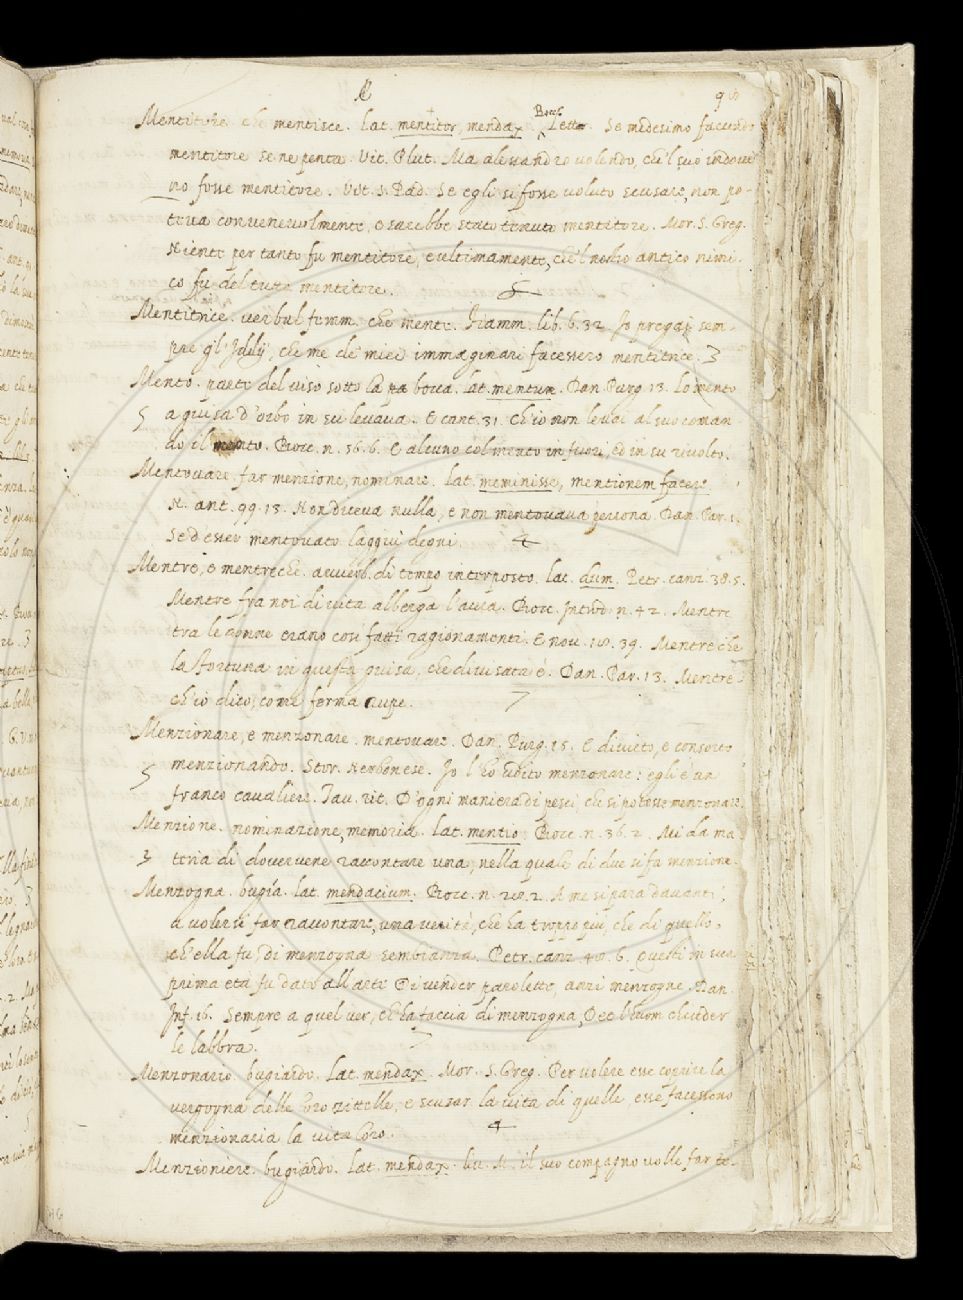 Mentitore che mentisce. Lat. mentitor, mendax. Bocc. Lett. Se medesimo faccendo
mentitore se ne penta. Vit. Plut. Ma alessandro volendo, che'l suo indovi
no fosse mentitore. Vit. S. Pad. Se egli si fosse voluto scusare, non po-
teva convenevolmente, e sarebbe stato tenuto mentitore. Mor. S. Greg.
Niente per tanto fu mentitore, e ultimamente, che'l nostro antico nimi
co fu del tutto mentitore. 5
Mentitrice. verbal femm. che mente. Fiamm. lib. 6. 32. Io pregai sem-
pre gl'Iddij, che me de' miei immaginari facessero mentitrice. 3
Mento. parte del viso sotto la bocca. Lat. mentum. Dan. Purg. 13. Lo mento
5 a guisa d'orbo in su levava. E cant. 31. Ch'io non levai al suo coman
do il mento. Bocc. n. 56. 6. E alcuno col mento in fuori, ed in su rivolto.
Mentovare. far menzione, nominare. Lat. meminisse, mentionem facere
N. ant. 99. 13. Non diceva nulla, e non mentovava persona. Dan. Par. 1.
Sed esser mentovato laggiù degni. 4
Mentre, e mentreche. avverb. di tempo interposto. Lat. dum. Petr. canz. 38. 5.
Mentre fra noi di vita alberga l'aura. Bocc. Introd. n. 42. Mentre
tra le donne erano così fatti ragionamenti. E nov. 18. 39. Mentre che
la fortuna in questa guisa, che divisata è. Dan. Par. 13. Mentre
ch'io dico, come ferma rupe. 7
Menzionare, e menzonare. mentovare. Dan. Purg. 15. E divieto, e consorto
menzionando. Stor. Nerbonese. Io l'ho udito menzonare: egli è un
5 franco cavaliere. Tav. rit. D'ogni maniera di pesci, che si potesse menzonare.
Menzione. nominazione, memoria. Lat. mentio. Bocc. n. 36. 2. Mi da ma
3 teria di dovervene raccontare una, nella quale di due si fa menzione.
Menzogna. bugia. Lat. mendacium. Bocc. n. 20. 2. A me si para davanti,
a volersi far raccontare, una verità, che ha troppo più, che di quello,
ch'ella fu, di menzogna sembianza. Petr. canz. 48. 6. Questi in sua
prima età fu dato all'arte Di vender parolette, anzi menzogne. Dan.
Inf. 16. Sempre a quel ver, c'ha faccia di menzogna, Dee l'huom chiuder
le labbra.
Menzonario. bugiardo. Lat. mendax. Mor. S. Greg. Per volere esse coprire la
vergogna delle loro zittelle, e scusar la vita di quelle esse facesseno
menzionaria la vita loro. 4
Menzioniere. bugiardo. Lat. mendax. liv. M. il suo compagno volle far te-